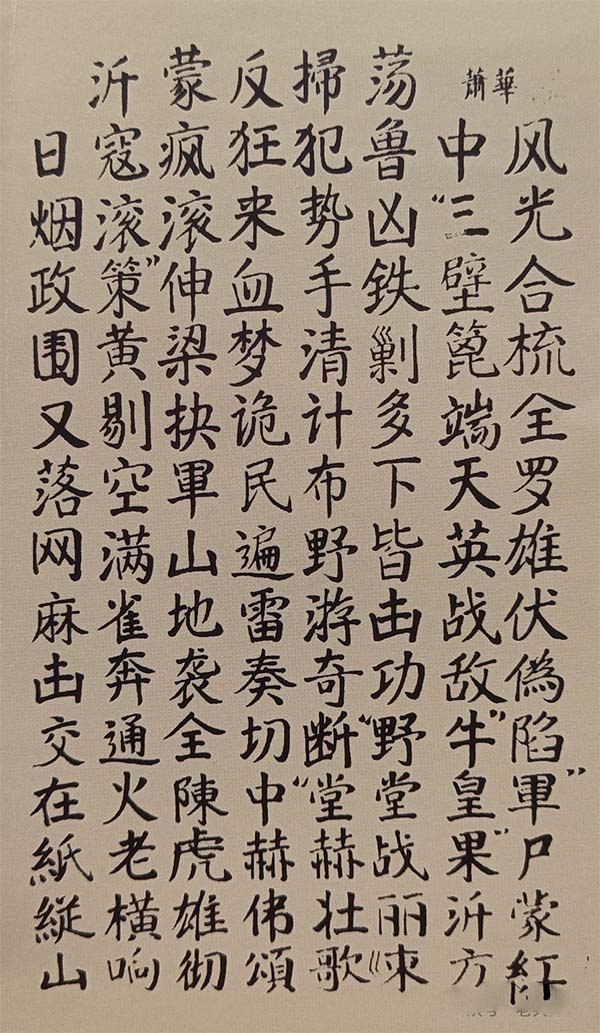 沂蒙反掃荡 蕭華
日寇疯狂犯鲁中风
烟滚滚来势凶“三光
政策”伸血手铁壁合
围黄梁梦清剿篦梳
又剔抉诡计多端全
落空軍民布下天罗
网满山遍野皆英雄
麻雀地雷游击战伏
击奔袭奏奇功敌偽
交通全切断“野牛”陷
在火陳中“堂堂皇軍”
紙老虎赫赫战果尸
縱橫雄伟壮丽沂蒙
山响彻頌歌《東方紅